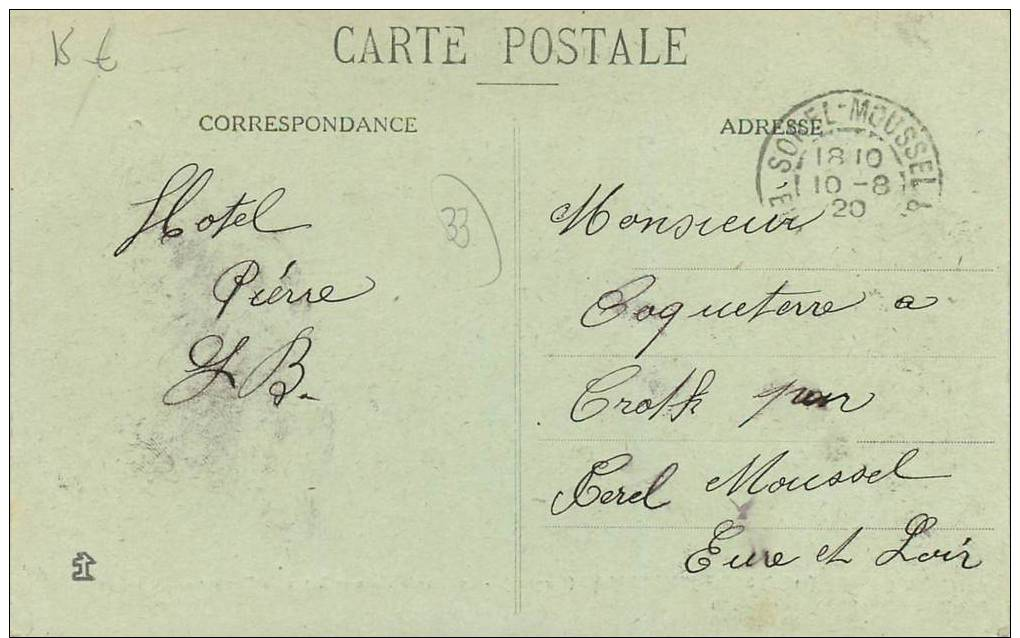 CARTE POSTALE
CORRESPONDANCE
ADRESSE
SOREL-MOUSSEL
18 10
10 -8
20
33
Hotel
Piérre
L B.
Monsieur
Coqueterre a
Croth par
Cerel Moussel
Eure et Loir